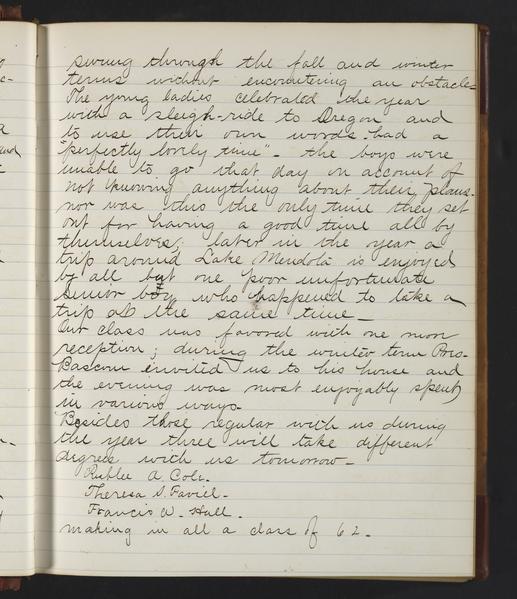 swing through the fall and winter
terms without encountering an obstacle-
The young ladies celebrated the year
with a sleigh-ride to Oregon and
to use their own words-had a
"perfectly lovely time"- the boys were
unable to go that day on account of
not knowing anything about their plans-
nor was this the only time they set
out for having a good time all by
themselves; later in the year a
trip around Lake Mendota is enjoyed
by all but one poor unfortunate
Senior boy who happened to take a
trip at the same time-
Our class was favored with one more
reception; during the winter term Pres-
Bascom invited us to his house and
the evening was most enjoyably spent
in various ways-
Besides those regular with us during
the year three will take different
degrees with us tomorrow-
Rublee A. Cole-
Theresa S. Favill-
Francis W. Hall-
making in all a class of 62-